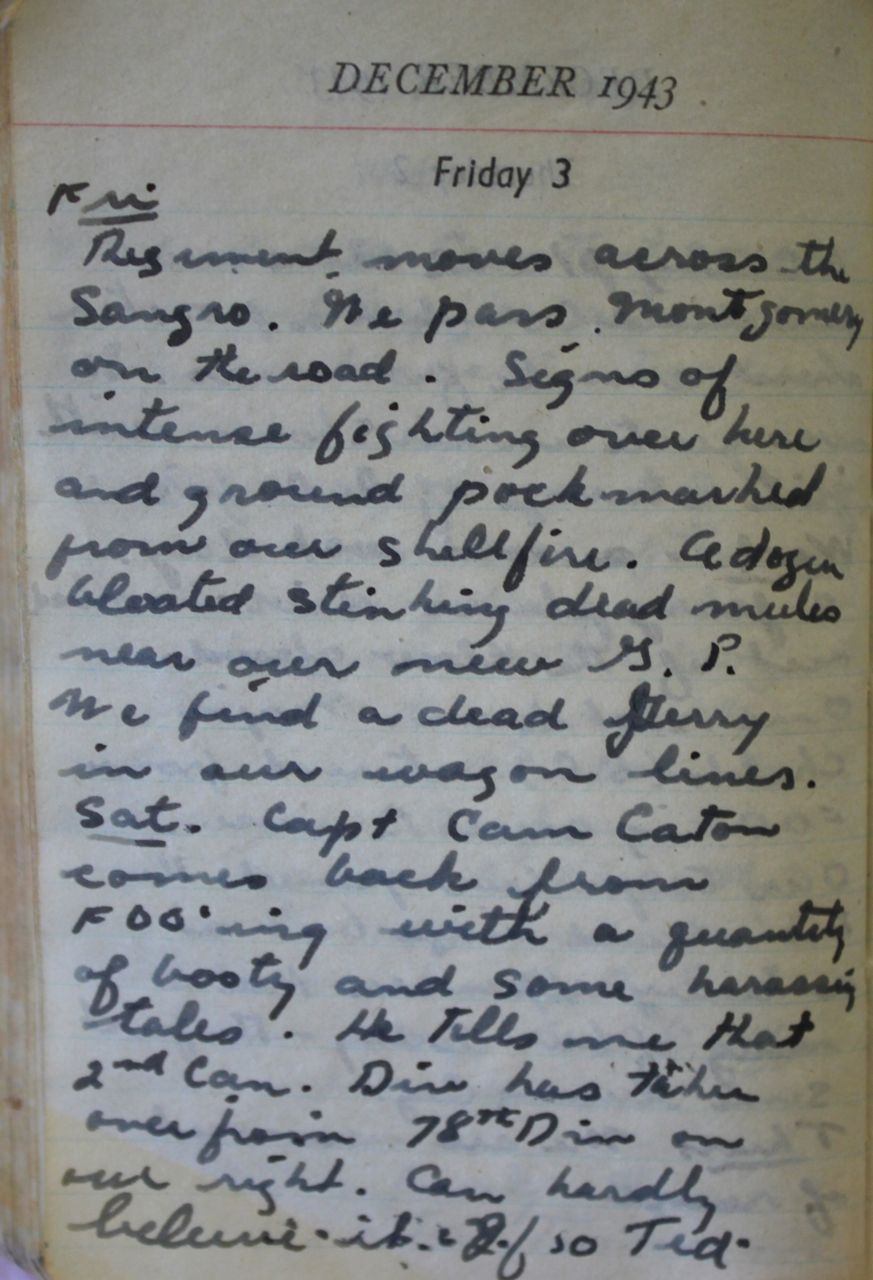 DECEMBER 1943
Friday 3
Fri
Regiment moves across the
Sangro. We pass Montgomery
on the road. Signs of
intense fighting over here
and ground pock marked
from our shellfire. A dozen
bloated stinking dead mules
near our new G. P.
We find a dead Jerry
in our wagon lines.
Sat. Capt Cam Caton
comes back from
FOO'ing with a quantity
of booty and some harassing
tales. He tells me that
2nd Can. Div has taken
over from 78th Div on
our right. Can hardly
believe it. If so Ted